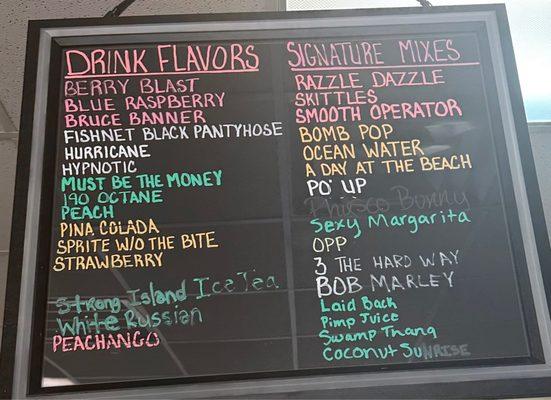 DRINK FLAVORS
BERRY BLAST
BLUE RASPBERRY
BRUCE BANNER
FISHNET BLACK PANTYHOSE
HURRICANE
HYPNOTIC
MUST BE THE MONEY
190 OCTANE
PEACH
PINA COLADA
SPRITE W/O THE BITE
STRAWBERRY
Strong Island Ice Tea
White Russian
PEACHANGO
SIGNATURE MIXES
RAZZLE DAZZLE
SKITTLES
SMOOTH OPERATOR
BOMB POP
OCEAN WATER
A DAY AT THE BEACH
PO' UP
Bunny
Sexy Margarita
OPP
3 THE HARD WAY
BOB MARLEY
Laid Back
Pimp Juice
Swamp Thang
Coconut SuNRISE